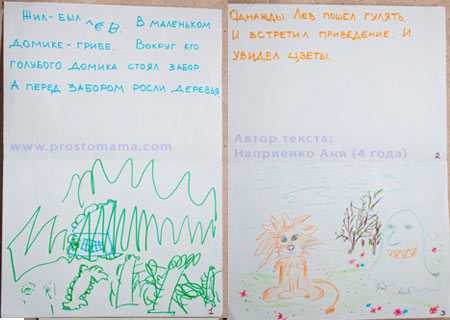 Жил-был Лев. В маленьком
домике-грибе. Вокруг его
голубого домика стоял забор.
А перед забором росли деревья
www.prostomama.com
1
Однажды Лев пошел гулять.
И встретил приведение. И
увидел цветы.
Автор текста:
Наприенко Аня (4 года)
2
3